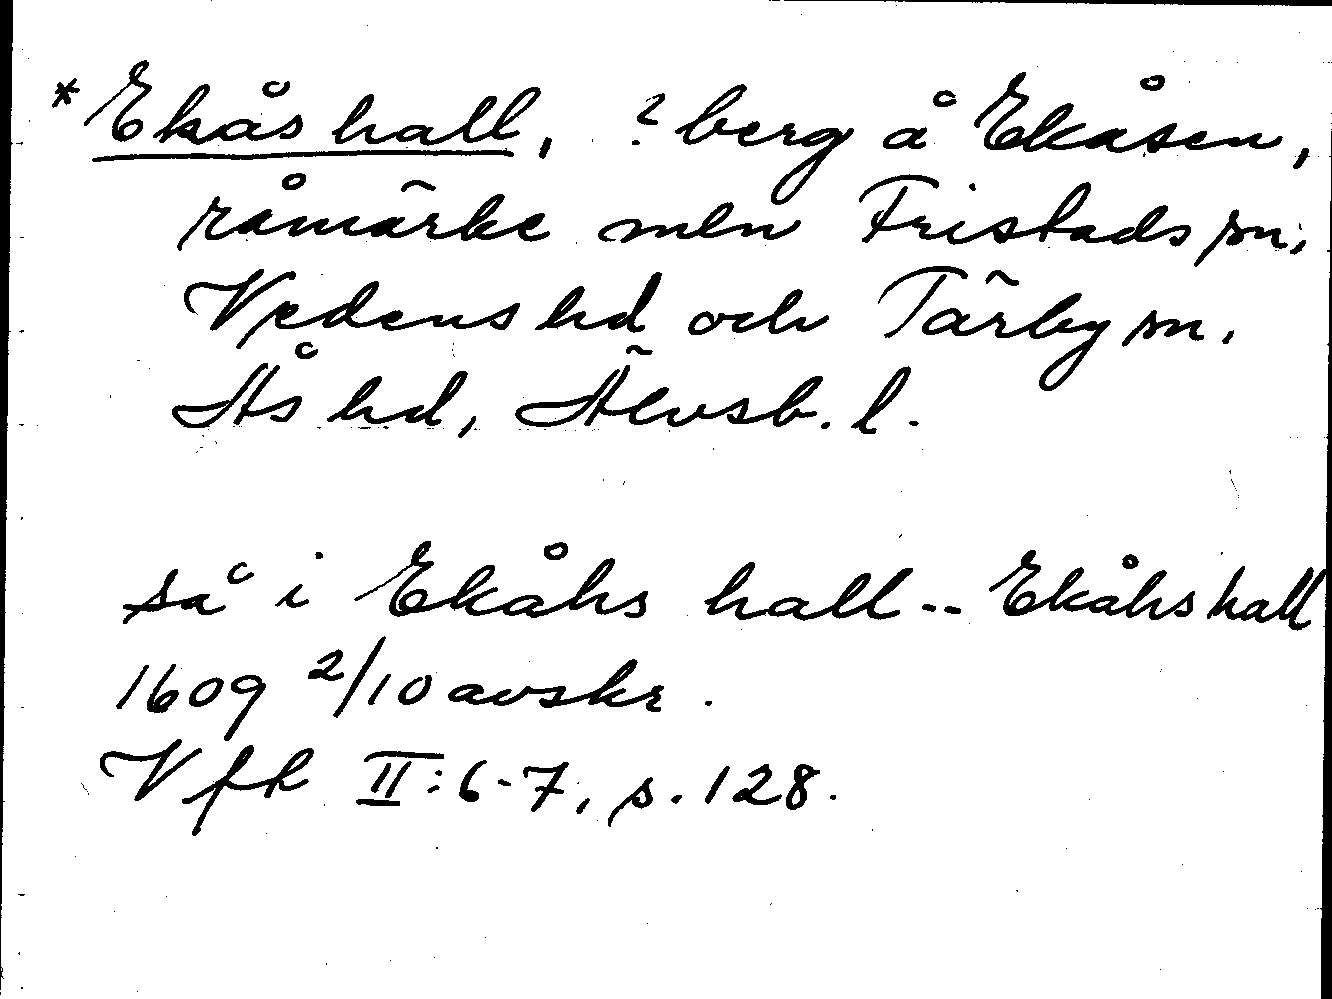 *Ekåshall, ? berg å Ekåsen,
råmärke mln Fristads sn,
Vedens hd och Tärby sn.
Ås hd, Älvsb. l.
så i Ekåhs hall -- Ekåhs hall
1609 2/10 avskr.
Vfh II:6-7, s. 128.